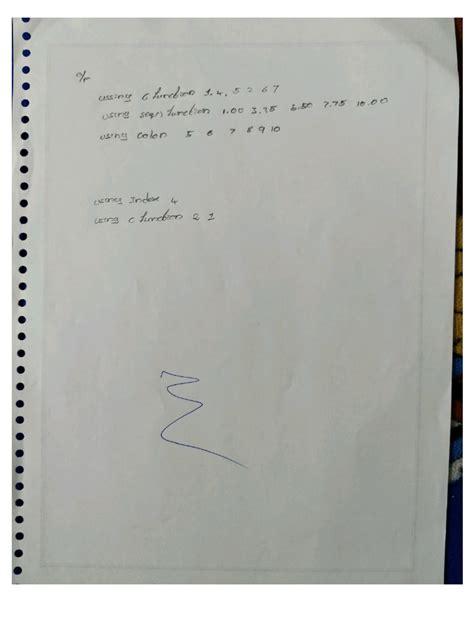 O/P
using c function 1 4, 5 2 6 7
using seqn function 1.00 3.25 5.50 7.75 10.00
using colon 5 6 7 8 9 10
using Index 4
using c function 2 1